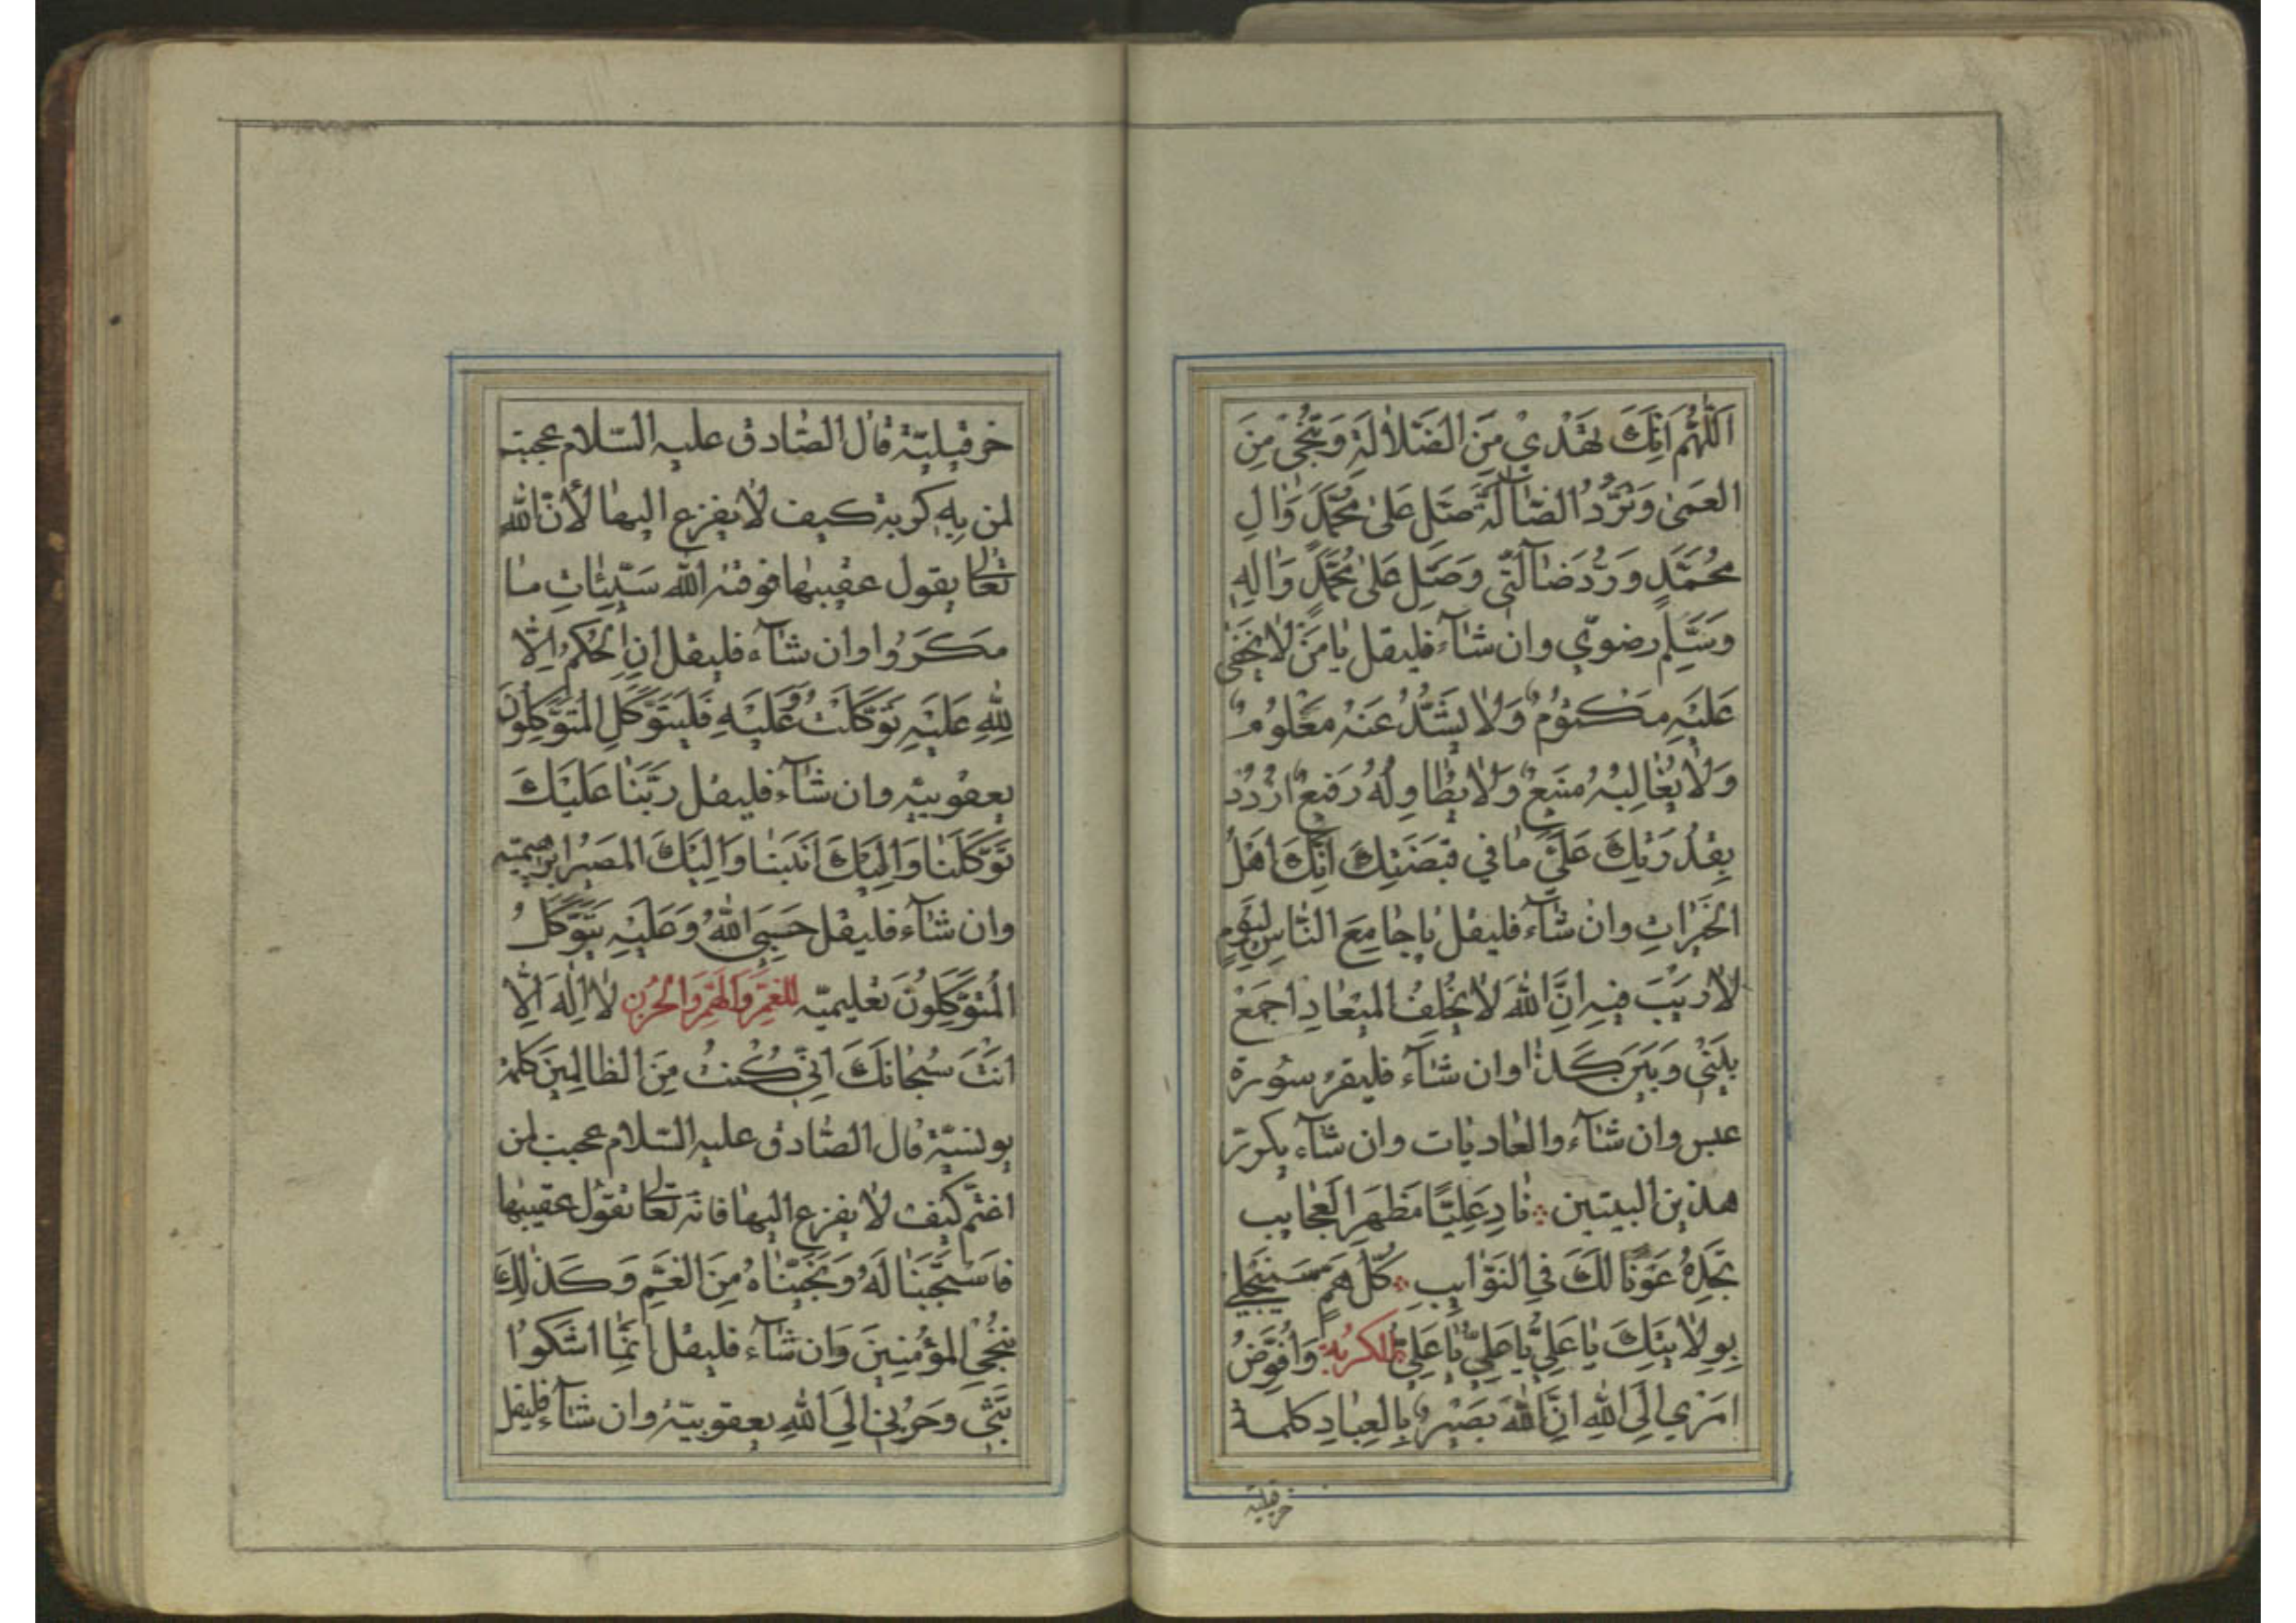 اَللّٰهُمَّ اِنَّكَ تَهْدِیْ مِنَ الضَّلاٰلَةِ وَتُنْجیٖ مِنَ
العَمیٰ وَتَرُدُّ الضّٰآلَّةَ صَلِّ عَلیٰ مُحَمَّدٍ وَاٰلِ
مُحَمَّدٍ وَرُدَّ ضٰآلَّتیٖ وَصَلِّ عَلیٰ مُحَمَّدٍ وَاٰلِهِ
وَسَلِّم رضوىّ وان شٰآء فليقل يٰا مَنْ لاٰ يَخْفیٰ
عَلَيْهِ مَكْتُوُمٌ وَلاٰ يَشُذُّ عَنْهُ مَعْلُومٌ
وَلاٰ يُغٰالِبُهُ مَنيٖعٌ وَلاٰ يُطٰاوِلُهُ رَفيٖعٌ اُرْدُدْ
بِقُدْرَتِكَ عَلَیَّ مٰا في قَبْضَتِكَ اِنَّكَ اَهْلُ
الخَيْرٰاتِ وان شٰآء فليقل يٰا جٰامِعَ النّٰاسِ لِيَوْمٍ
لاٰ رَيْبَ فيٖهِ اِنَّ اللّٰهَ لاٰ يُخْلِفُ الميٖعٰادِ اجمَعْ
بَيْنیٖ وَبَيْنَ كَذٰا وان شٰآء فليقرء سورة
عبس وان شٰآء والعٰاديٰات وان شٰآء يكرّر
هذين البيتين نٰادِ عَلِيًّا مَظْهَرَ العَجٰايِب
تَجِدْهُ عَوْنًا لَكَ فِی النَّوٰايِبِ كُلُّ هَمٍّ سَيَنْجَلي
بِوِلاٰيَتِكَ يٰا عَلِیُّ يٰا عَلِیُّ يٰا عَلِیُّ للكُربة وَاُفَوِّضُ
اَمْري اِلَی اللّٰهِ اِنَّ اللّٰهَ بَصيٖرٌ بِالعِبٰادِ كلمة
خرقيليّة
خرقيليّة قال الصّادق عليه السّلام عجبت
لمن بِهِ كربة كيف لاٰ يفزع اليها لأنّ اللّٰه
تعالٰی يقول عقيبها فَوَقٰهُ اللّٰه سَيِّئٰاتِ مٰا
مَكَرُوا وان شٰآء فليقل اِنِ الحُكْمُ اِلّٰا
لِلّٰهِ عَلَيْهِ تَوَكَّلْتُ وَعَلَيْهِ فَليَتَوَكَّلِ المُتَوَكِّلُونَ
يعقوبيّه وان شٰآء فليقل رَبَّنٰا عَلَيْكَ
تَوَكَّلْنٰا وَاِلَيْكَ اَنَبْنٰا وَاِلَيْكَ المَصيٖرُ ابرٰهيميّه
وان شٰآء فليقل حَسْبِیَ اللّٰهُ وَعَلَيْهِ يَتَوَكَّلُ
المُتَوَكِّلُونَ تعليميّه للغمّ وَالهَمّ وَالحُزن لاٰ اِلٰهَ اِلّٰا
اَنْتَ سُبْحٰانَكَ اِنّیٖ كُنتُ مِنَ الظالِميٖنَ كلمة
يونسيّة قال الصّادق عليه السّلام عجبت لمن
اغتمّ كيف لاٰ يفزع اليها فانّه تعالٰی يقول عقيبها
فاسْتَجَبْنٰا لَهُ وَنَجَّيْنٰاهُ مِنَ الغَمِّ وَكَذٰلِكَ
نُنْجِی المؤْمِنيٖنَ وَان شٰآء فليقل اِنَّمٰا اَشْكُوا
بَثّیٖ وَحُزْنیٖ اِلَی اللّٰهِ يعقوبيّة وان شٰآء فليقل